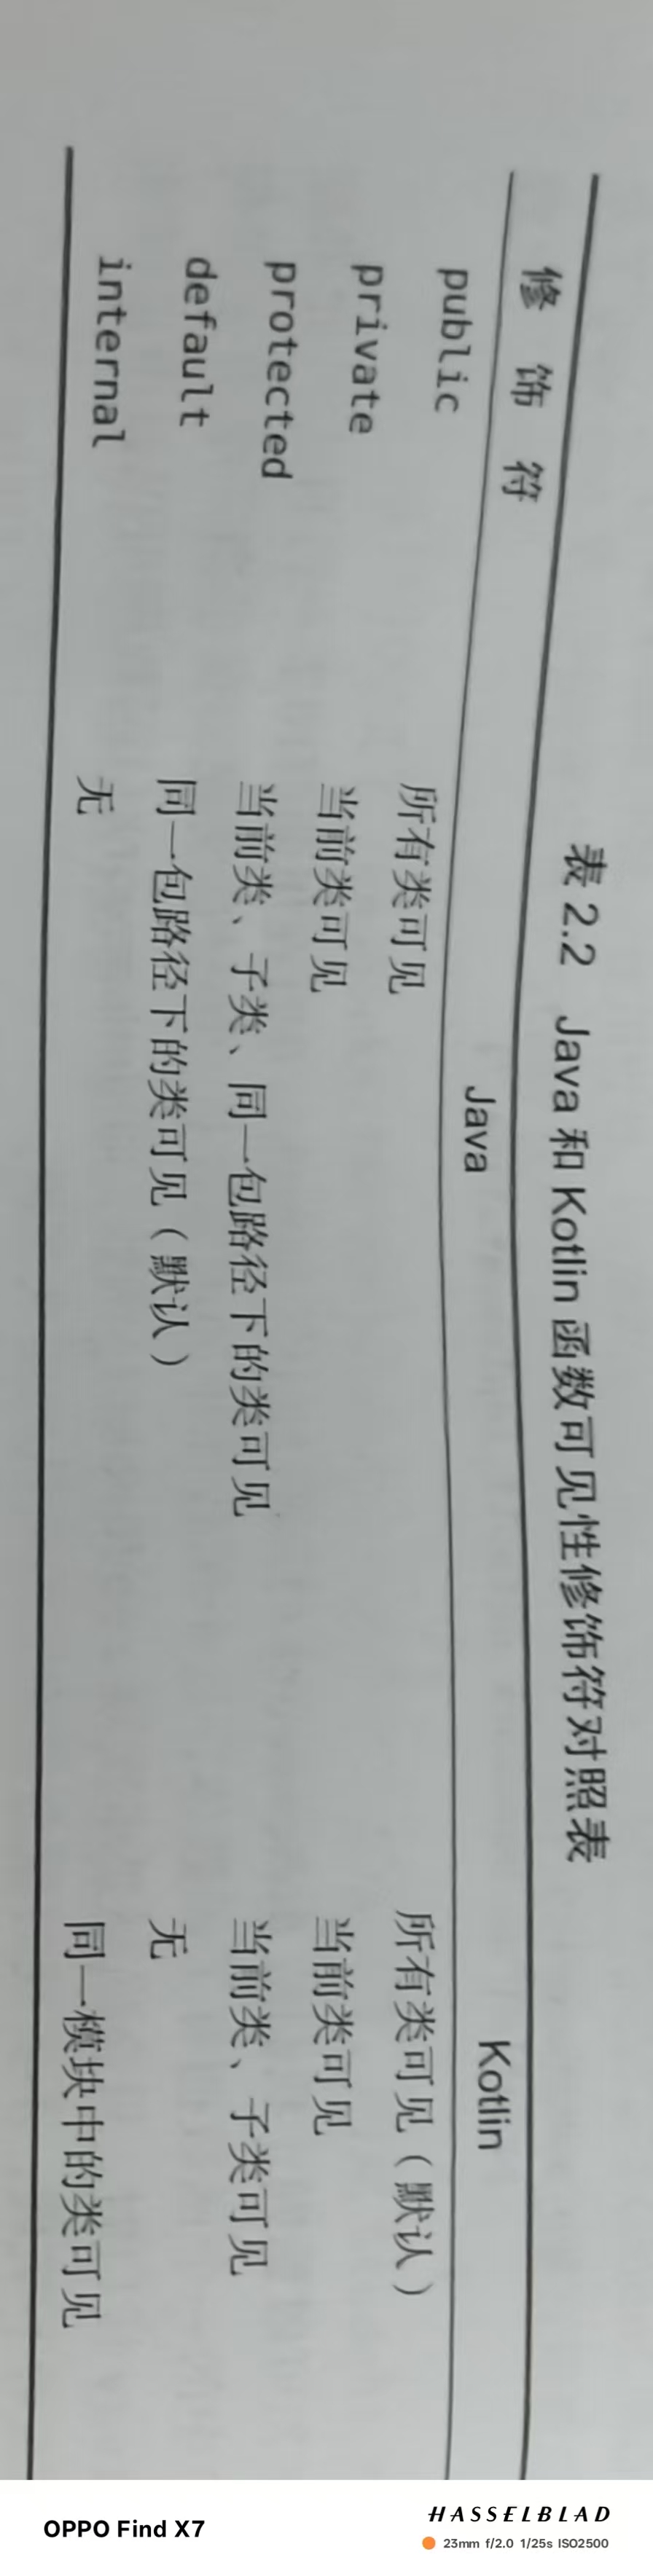 表 2.2 Java 和 Kotlin 函数可见性修饰符对照表
修 饰 符 Java Kotlin
public 所有类可见 所有类可见（默认）
private 当前类可见 当前类可见
protected 当前类、子类、同一包路径下的类可见 当前类、子类可见
default 同一包路径下的类可见（默认） 无
internal 无 同一模块中的类可见
OPPO Find X7
HASSELBLAD
23mm f/2.0 1/25s ISO2500